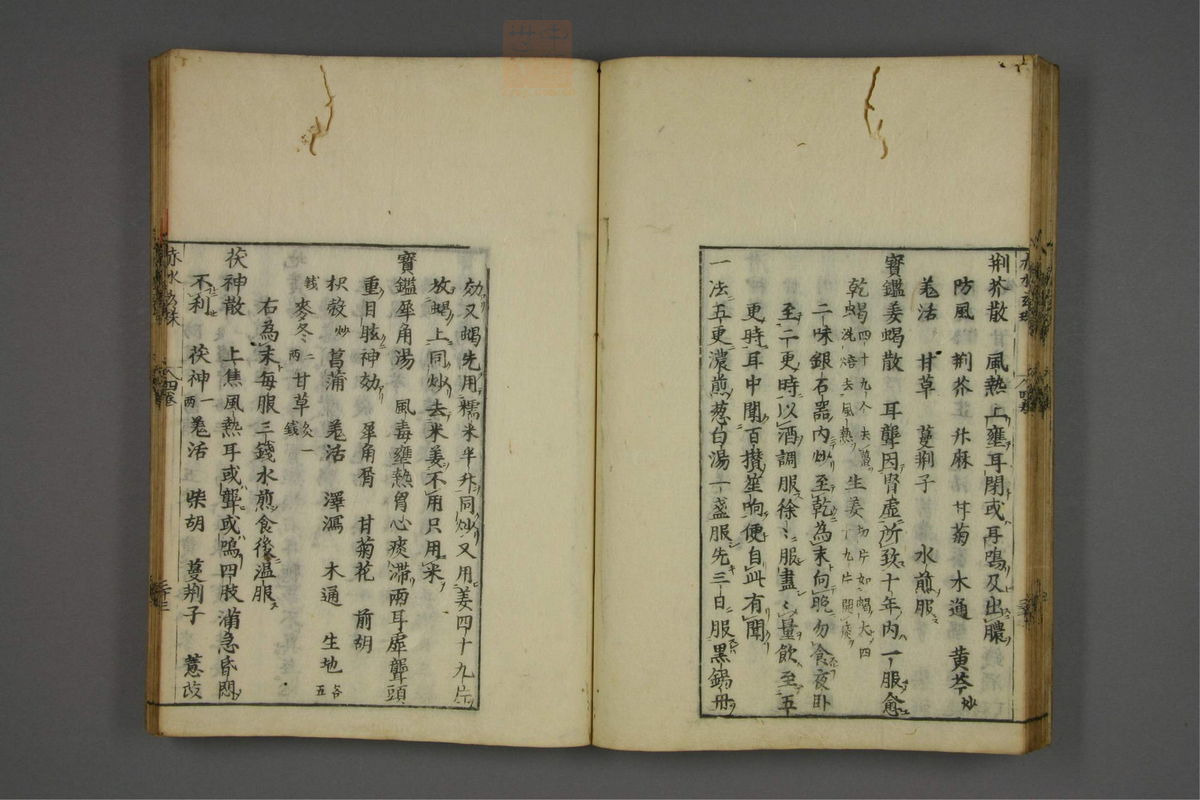 荆芥散 風熱上壅耳閉或耳鳴及出膿
防風 荆芥 升麻 甘菊 木通 黃芩炒
羗活 甘草 蔓荆子 水煎服
寶鑑姜蝎散 耳聾因腎虛所致十年內一服愈
乾蝎四十九个去螫虫洗焙去風熱 生姜切片如蝎大四十九片開痰
二味銀石器內炒至乾為末向晚勿食夜卧
至二更時以酒調服徐〻服盡〻量飲至五
更時耳中聞百攢笙响便自此有聞
一法五更濃煎葱白湯一盞服先三日服黑錫丹
効又蝎先用糯米半升同炒又用姜四十九片
放蝎上同炒去米姜不用只用米
寶鑑犀角湯 風毒壅熱胷心痰滯兩耳虛聾頭
重目眩神効 犀角屑 甘菊花 前胡
枳殼炒 菖蒲 羗活 澤瀉 木通 生地各五
錢 麥冬二兩 甘草炙一錢
右為末每服三錢水煎食後溫服
茯神散 上焦風熱耳或聾或鳴四肢滿急昏悶
不利 茯神一兩 羗活 柴胡 蔓荆子 薏苡
赤水玄珠 四卷